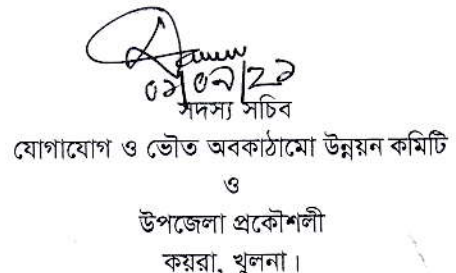 সদস্য সচিব
যোগাযোগ ও ভৌত অবকাঠামো উন্নয়ন কমিটি
ও
উপজেলা প্রকৌশলী
কয়রা, খুলনা।